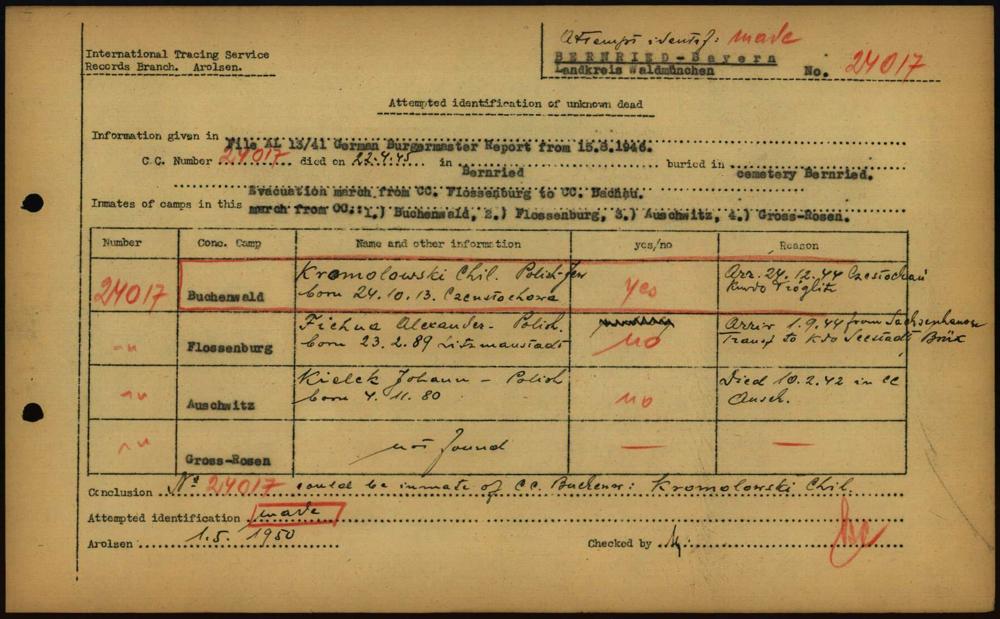 Attempt identif: made
International Tracing Service
Records Branch. Arolsen.
BERNRIED-Bayern
Landkreis Waldmünchen No. 24017
Attempted identification of unknown dead
Information given in File AL 13/41 German Burgermaster Report from 15.8.1946.
C.C. Number 24017 died on 22.4.45 in Bernried buried in cemetery Bernried.
Evacuation march from CC. Flossenburg to CC. Dachau.
Inmates of camps in this march from CC: 1.) Buchenwald, 2.) Flossenburg, 3.) Auschwitz, 4.) Gross-Rosen.
Number Conc. Camp Name and other information yes/no Reason
24017 Buchenwald Kromolowski Chil. Polish-Jew yes Arr. 24.12.44 Czestochau
born 24.10.13. Czenstochowa Kmdo Tröglitz
-"- Flossenburg Fichna Alexander - Polish. no Arriv 1.9.44 from Sachsenhausen
born 23.2.89 Litzmannstadt Transf to Kdo Seestadt Brüx
-"- Auschwitz Kielek Johann - Polish no Died 10.2.42 in CC
born 4.11.80 Ausch.
-"- Gross-Rosen not found — —
Conclusion No 24017 could be inmate of CC. Buchenw: Kromolowski Chil.
Attempted identification made
Arolsen 1.5. 1950 Checked by